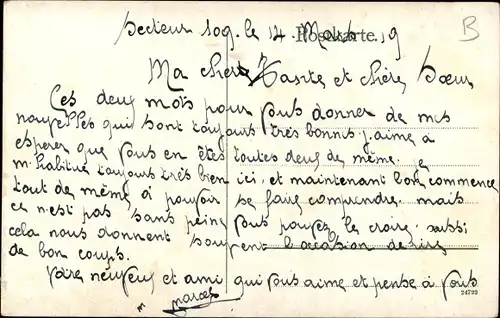 Secteur 109. le 14 Mars 19
Postkarte.
B
Ma chère Tante et chère Soeur
Ces deux mots pour vous donner de mes
nouvelles qui sont toujours très bonnes j'aime a
esperer que vous en êtes toutes deux de même. je
m'habitue toujours très bien ici, et maintenant lon commence
tout de même à pouvoir se faire comprendre. mais
ce n'est pas sans peine vous pouvez le croire. aussi
cela nous donnent souvent l'occasion de rire
de bon coups.
Votre neuveu et ami qui vous aime et pense à vous
Marcel
24793